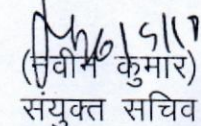 (नवीन कुमार)
संयुक्त सचिव